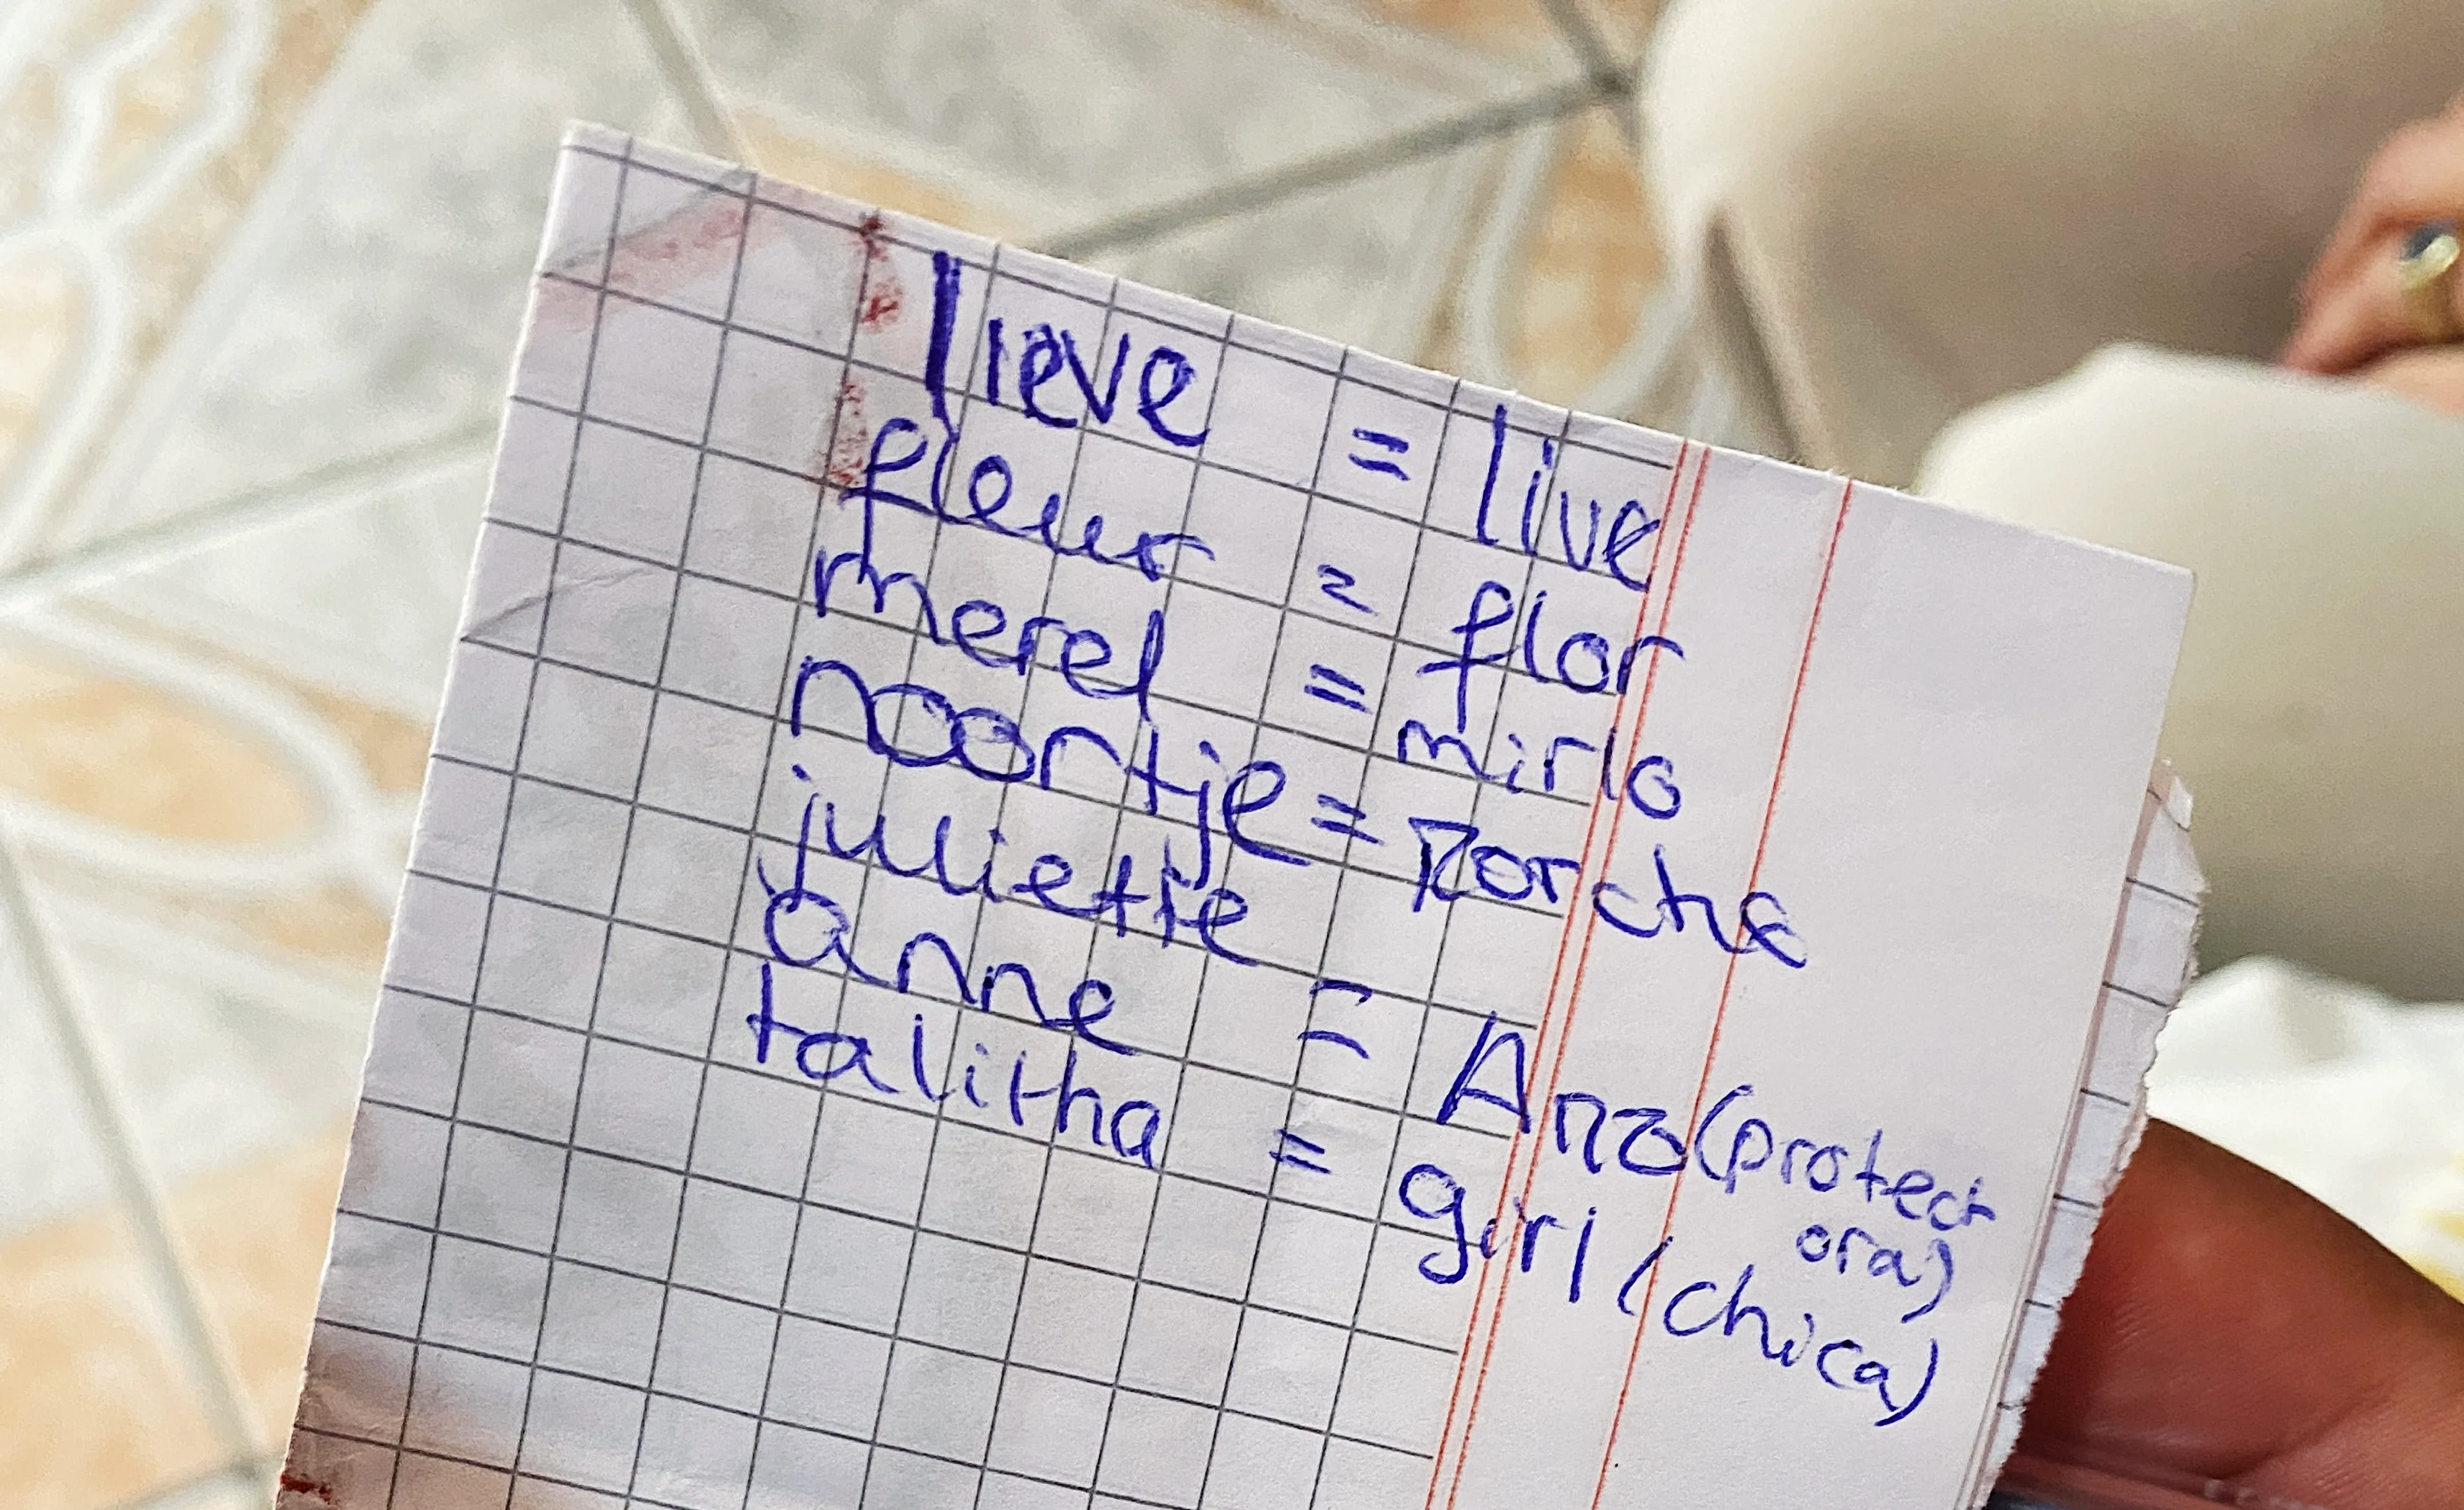 lieve = live
fleur = flor
merel = mirlo
noortje =
juliette
anne = Ana (protect
ora)
talitha = girl (chica)